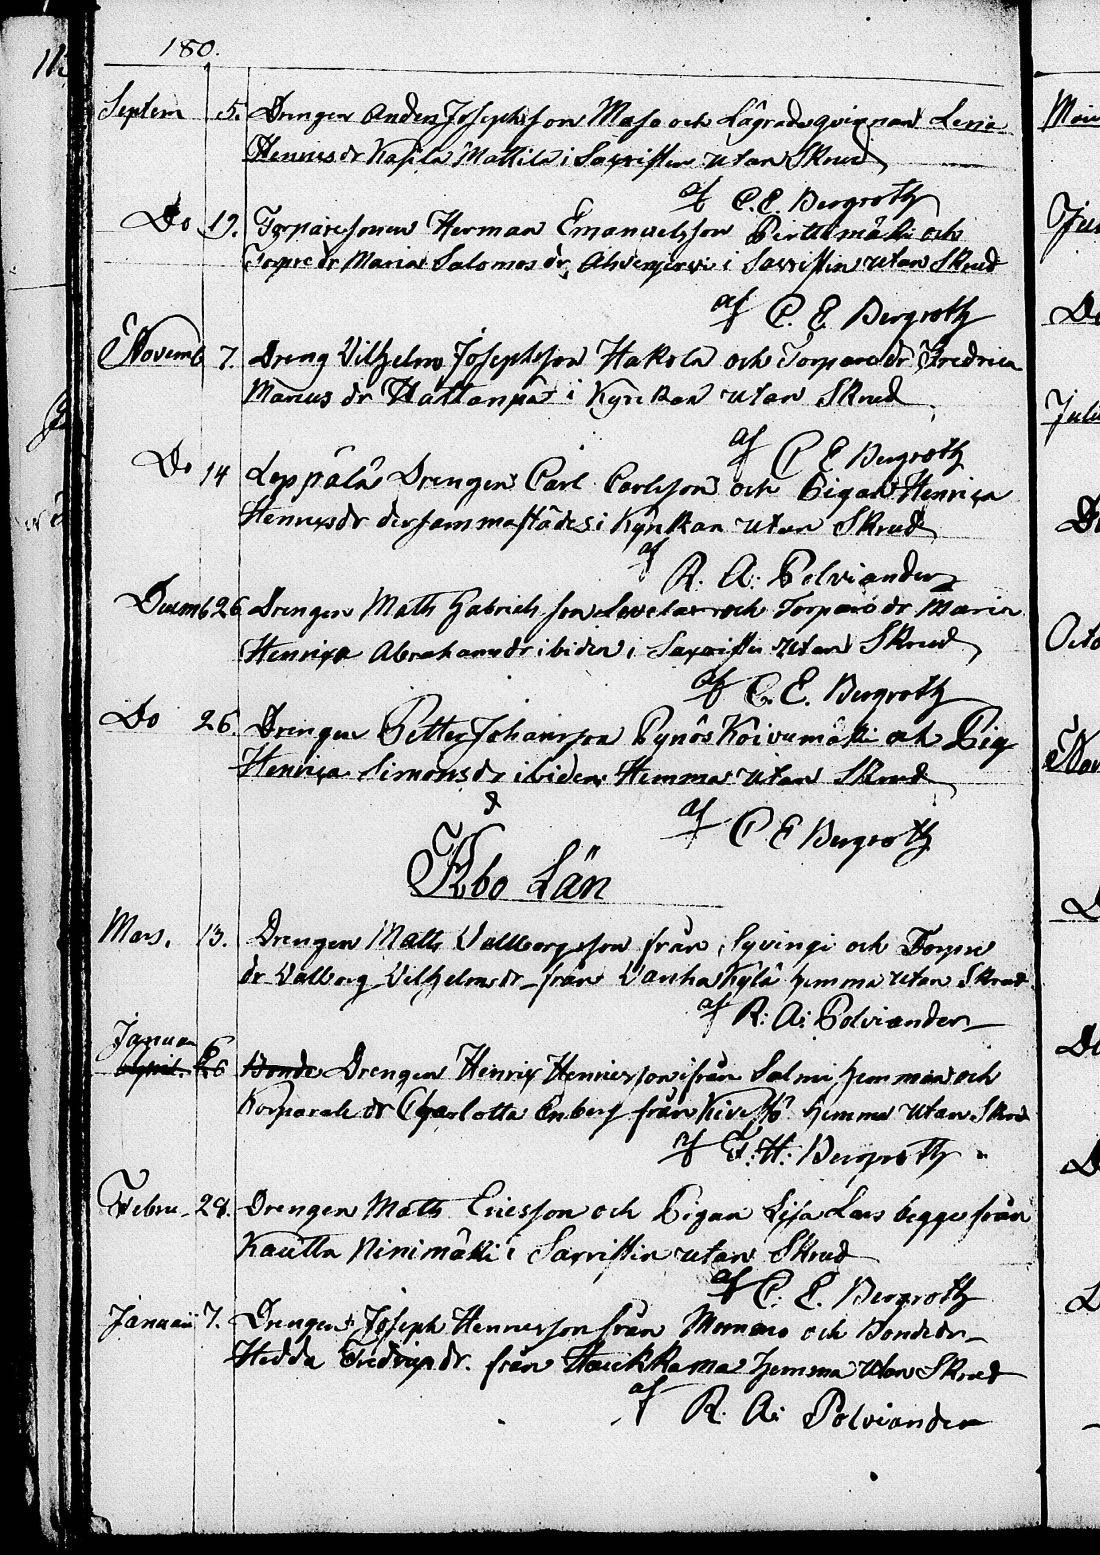 180.
Septem 5. Drengen Anders Josephsson Maso och Lägradsqvinnan Lena
Henricsdr Kasila Mattila i Sacristien utan Skrud
af C. E. Bergroth
Do 19. Torparesonen Herman Emanuelsson Pirttimäki och
Torpre dr Maria Salomos dr, Ahvenjervi i Sacristin utan Skrud
af C. E. Bergroth
Novemb 7. Dreng Vilhelm Josephsson Hakola och Torpare dr Fredrica
Marius dr i Kyrckan utan Skrud
af C E Bergroth
Do 14 Leppälä Drengen Carl Carlsson och Pigan Henrica
Henricsdr dersammastädes i Kyrckan utan Skrud
af
R. A: Polviander
Decemb 26 Drengen Math Gabriels son och Torpare dr Maria
Henrica Abrahamsdr ibiden i Sacristin utan Skrud
af C. E. Bergroth
Do 26. Drengen Petter Johansson Pynös Koivumäki och Pig
Henrica Simonsdr ibiden Hemma utan Skrud
af C E Bergroth
Åbo Län
Mars. 13. Drengen Matts Vallborgsson från Syvingi och Torpre
dr Valborg Vilhelmsdr från Vanhakylä hemma utan Skrud
af R: A: Polviander
Januari
April. 6 Bonde Drengen Henrix Henricsson ifrån Salmi hemman och
Korparals dr Charlotta Enberg från hemma utan Skrud
af F: H: Bergroth
Febru 28. Drengen Math Ericsson och Pigan Lisa Lars begge från
Kautta Ninimäki i Sacristin utan Skrud
af C. E. Bergroth
Januari 7. Drengen Joseph Henricsson från och Bondedr
Hedda Fredricsdr. från Haukkama hemma utan Skrud
af R: A: Polviander